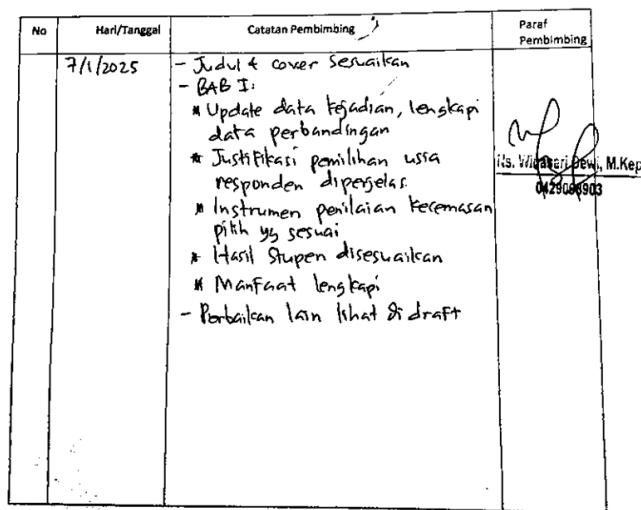 No Hari/Tanggal Catatan Pembimbing Paraf Pembimbing
7/1/2025 - Judul & cover sesuaikan
- BAB I:
* Update data kejadian, lengkapi
data perbandingan
* Justifikasi pemilihan usia
responden diperjelas.
* Instrumen penilaian kecemasan
pilih yg sesuai
* Hasil Stupen disesuaikan
* Manfaat lengkapi
- Perbaikan lain lihat di draft
Ns. Dewi, M.Kep